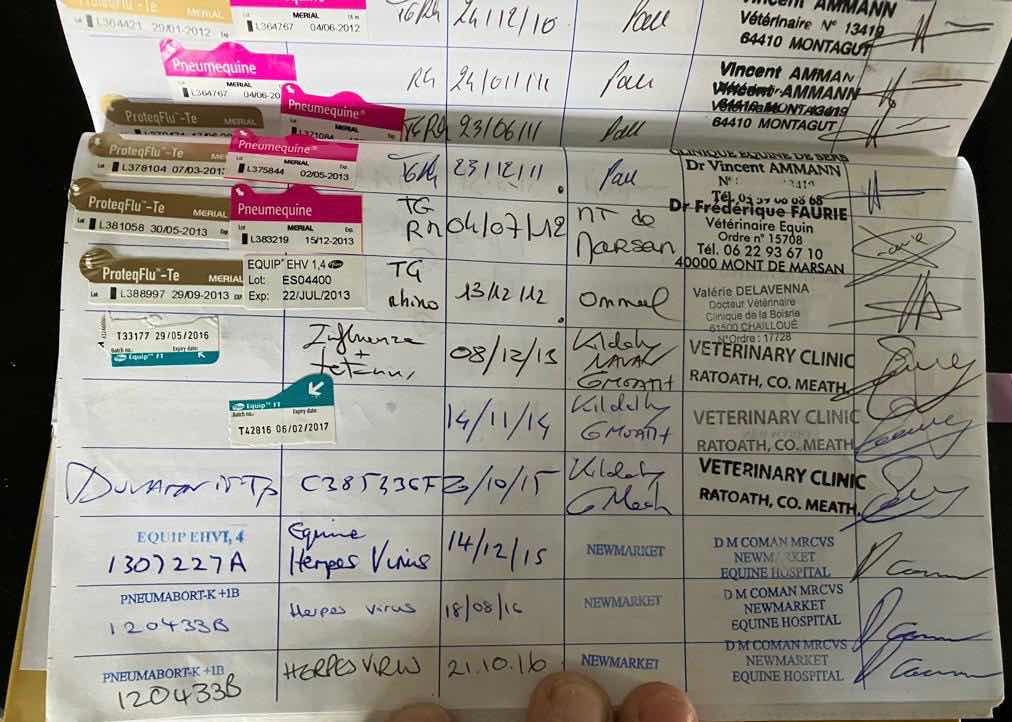 ProteqFlu™-Te
MERIAL
L364421 29/01/2012 Exp
L364767 04/06/2012
TG Rh 24/12/10 Pau
Vincent AMMANN
Vétérinaire N° 13419
64410 MONTAGUT
Pneumequine
MERIAL
L364767 04/06/20
Rh 24/01/11 Pau
Vincent AMMAN
Vincent AMMANN
64410 MONTAGUT
ProteqFlu™-Te
Pneumequine®
MERIAL
L371084
TG Rh 23/06/11 Pau
ProteqFlu™-Te
L378104 07/03/201
Pneumequine®
MERIAL
Lot L375844 02/05/2013 Exp.
TG Rh 23/12/11 Pau
CLINIQUE EQUINE DE SERS
Dr Vincent AMMANN
N° : 13419
Tél. 05 59 06 68 68
ProteqFlu™-Te
MERIAL
Lot L381058 30/05/2013
Pneumequine
MERIAL
Lot L383219 15/12/2013 Exp.
TG
Rh 04/07/12 MT de
Marsan
Dr Frédérique FAURIE
Vétérinaire Equin
Ordre n° 15708
Tél. 06 22 93 67 10
40000 MONT DE MARSAN
ProteqFlu™-Te
MERIAL
Lot L388997 29/09/2013 EXP
EQUIP® EHV 1,4
Lot: ES04400
Exp: 22/JUL/2013
TG
rhino 13/12/12
Valérie DELAVENNA
Docteur Vétérinaire
Clinique de la Boisrie
61500 CHAILLOUÉ
N°Ordre : 17728
T33177 29/05/2016
Batch no.: Expiry date:
Equip™ FT
Influenza
+
Tetanus 08/12/13 Kildalky
NAVAN
CMEATH
VETERINARY CLINIC
RATOATH, CO. MEATH.
Equip™ FT
Batch no.: Expiry date:
T42816 06/02/2017
14/11/14 Kildalky
CMEATH
VETERINARY CLINIC
RATOATH, CO. MEATH.
C285336F /10/15 Kildalky
CMeath
VETERINARY CLINIC
RATOATH, CO. MEATH.
EQUIP EHV1, 4
1307227A
Equine
Herpes Virus 14/12/15
NEWMARKET
D M COMAN MRCVS
NEWMARKET
EQUINE HOSPITAL
PNEUMABORT-K +1B
120433B
Herpes virus 18/08/16
NEWMARKET
D M COMAN MRCVS
NEWMARKET
EQUINE HOSPITAL
PNEUMABORT-K +1B
120433B
HERPES VIRUS 21.10.16
NEWMARKET
D M COMAN MRCVS
NEWMARKET
EQUINE HOSPITAL